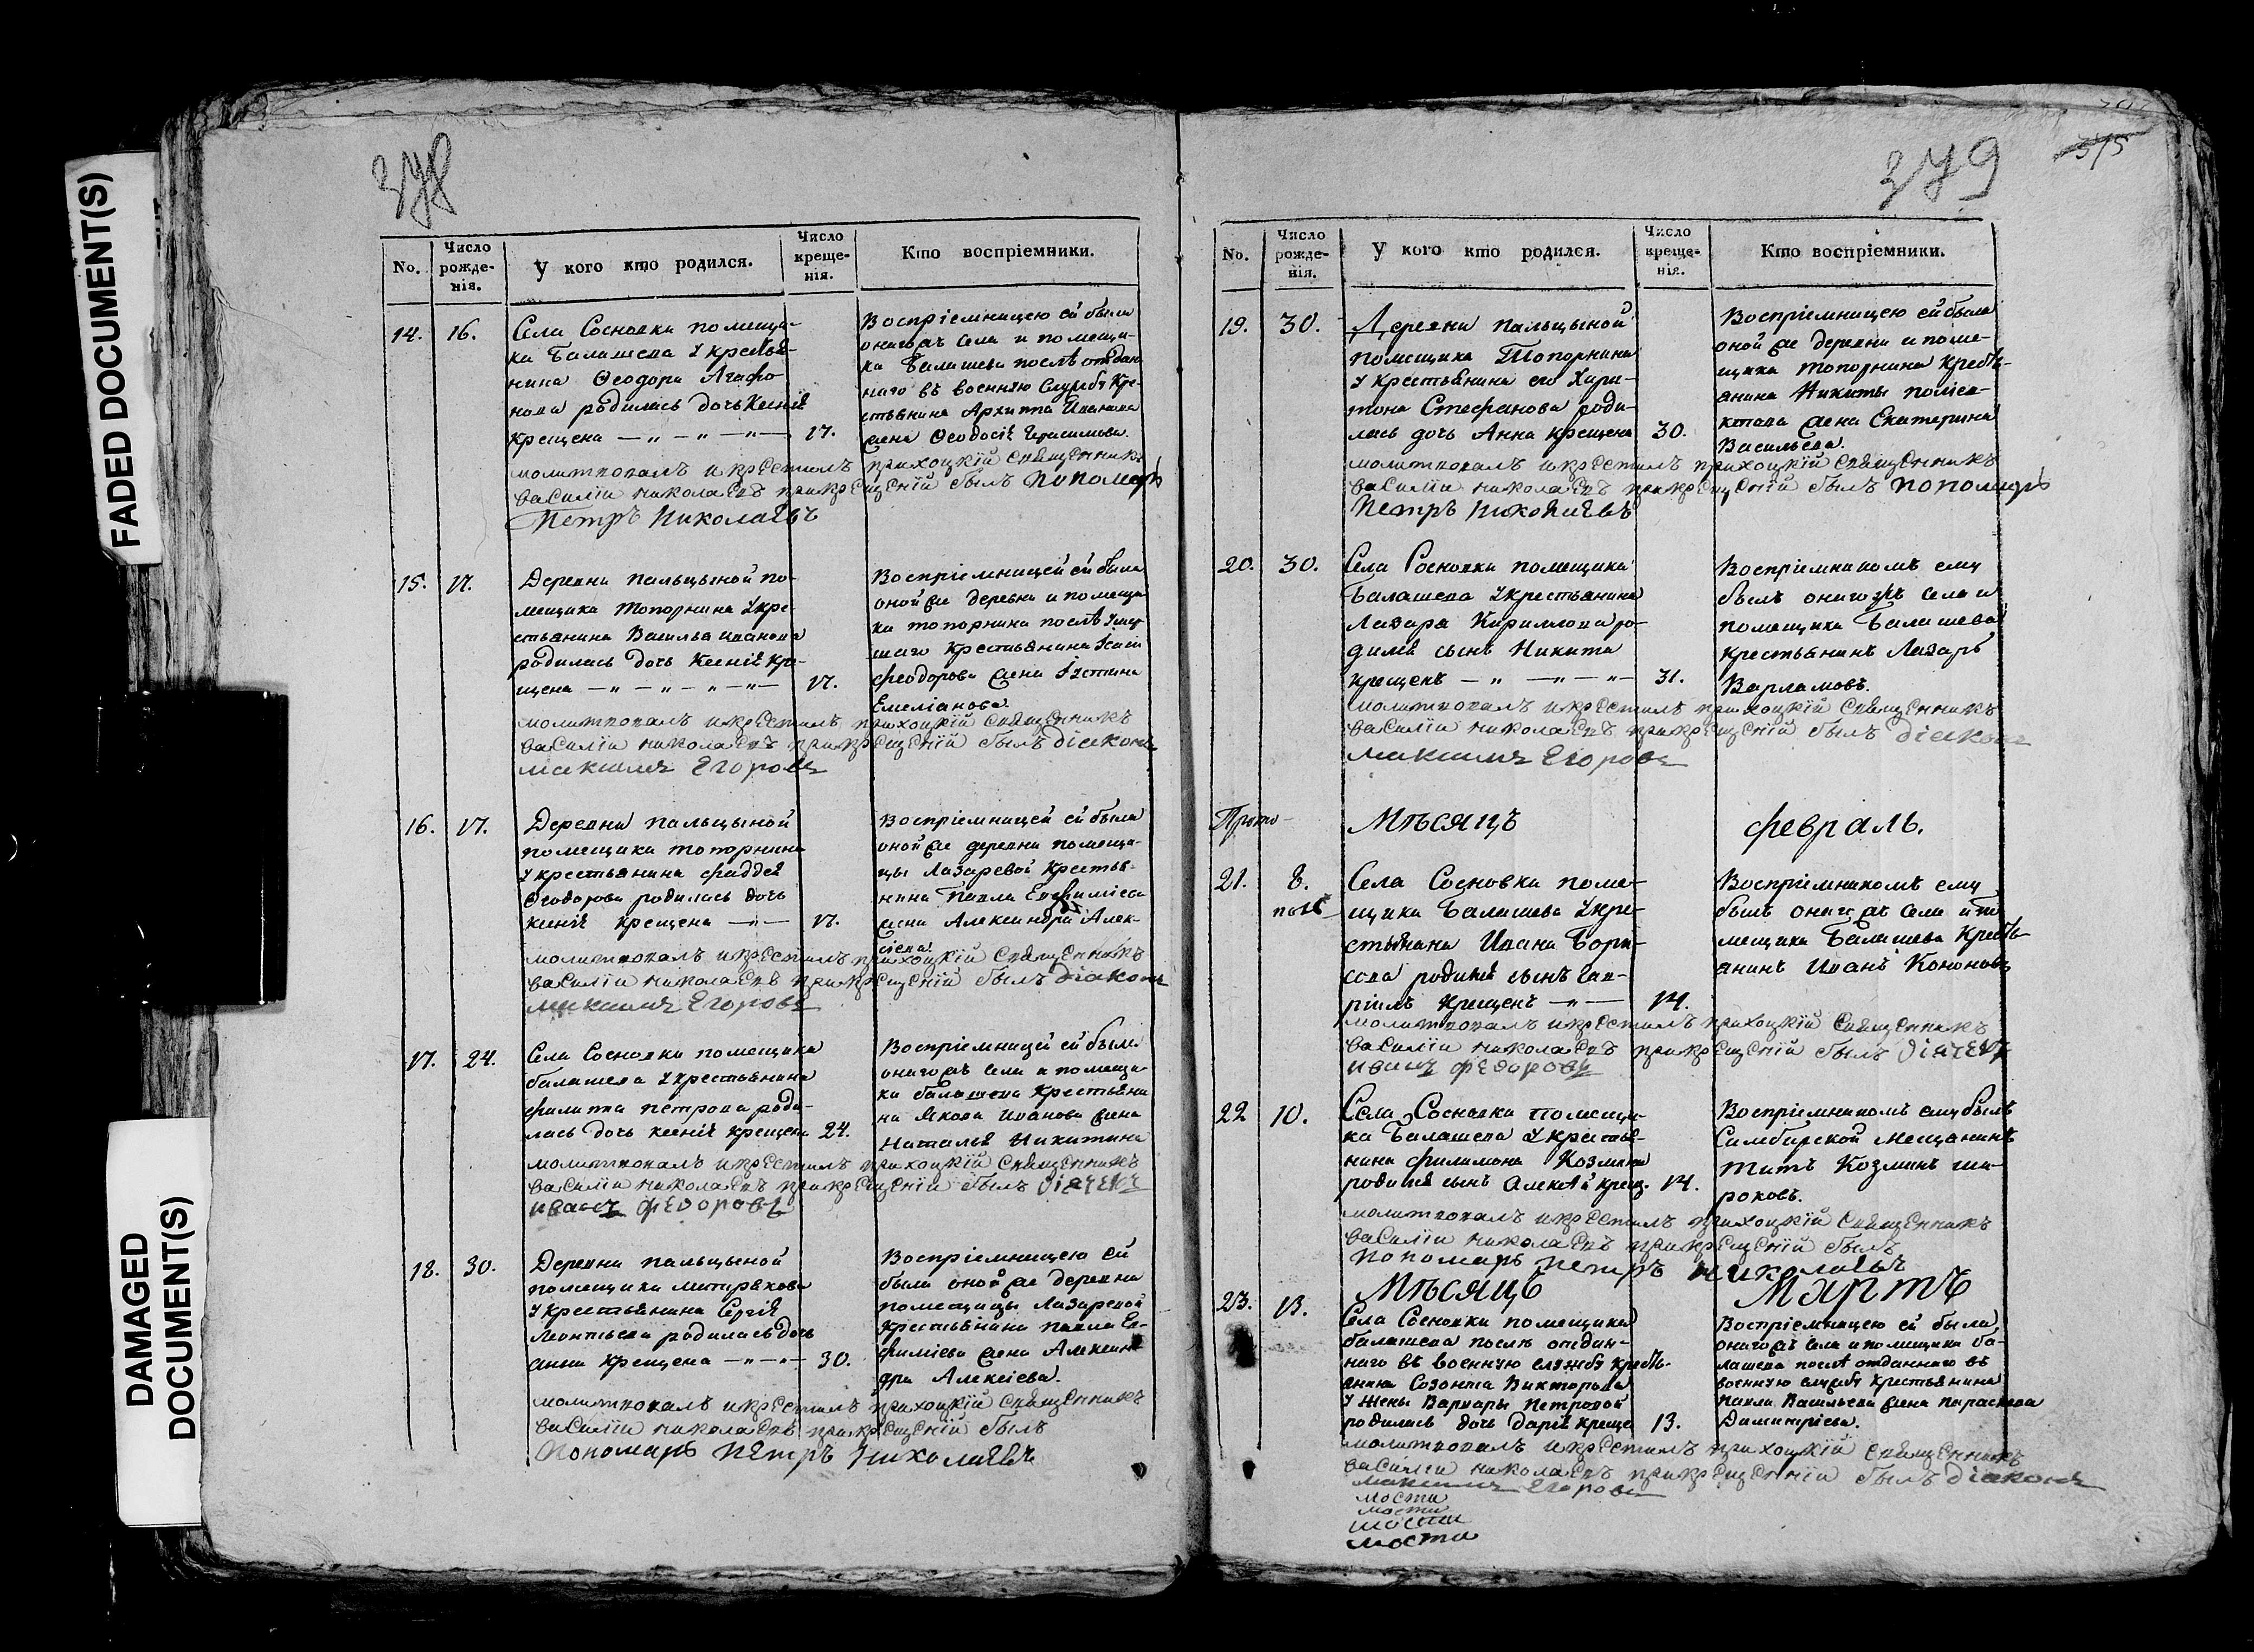 FADED DOCUMENT(S)
DAMAGED
DOCUMENT(S)
378
No.
Число
рожде-
нія.
У кого кто родился.
Число
креще-
нія.
Кто воспріемники.
14. 16.
Села Сосновки помещи-
ка Балашева у крестья-
нина Ѳеодора Агафо
нова родилась дочь Ксенія
крещена — „ — „ — „ — 17.
Воспріемницею ей была
онагожъ села и помещи-
ка Балашева послѣ отдан
наго въ военную службу кре-
стьянина Архиппа Иванова
жена Ѳеодосія Герасимова.
молитвовалъ и крестилъ прихоцкій священникъ
василіи николаевъ прикрещеніи былъ пономарь
Петръ Николаевъ
15. 17.
Деревни Пальцыной по-
мещика Топорнина у кре-
стьянина Василья Иванова
родилась дочь Ксенія кре-
щена — „ — „ — „ — „ — 17.
Воспріемницей ей была
оной же деревни и помещи
ка Топорнина послѣ умер
шаго крестьянина
феодорова жена Устина
Емеліанова.
молитвовалъ и крестилъ прихоцкій священникъ
василіи николаевъ прикрещеніи былъ діаконъ
максимъ Егоровъ
16. 17.
Деревни Пальцыной
помещика Топорнина
у крестьянина фаддея
Ѳеодорова родилась дочь
Ксенія крещена — „ — 17.
Воспріемницей ей была
оной же деревни помещи-
цы Лазаревой крестья-
нина Павла Евфиміева
жена Александра Алек-
сіева.
молитвовалъ и крестилъ прихоцкій священникъ
василіи николаевъ прикрещеніи былъ діаконъ
максимъ Егоровъ
17. 24.
Села Сосновки помещика
балашева у крестьянина
филиппа петрова роди-
лась дочь ксенія крещена 24.
Воспріемницей ей была
онагожъ села и помещи-
ка балашева крестьяни
на Якова Иванова жена
Наталья Никитина
молитвовалъ и крестилъ прихоцкій священникъ
василіи николаевъ прикрещеніи былъ діячекъ
иванъ федоровъ
18. 30.
Деревни Пальцыной
помещика
у крестьянина Сергія
Леонтьева родилась дочь
анна крещена — „ — „ — 30.
Воспріемницею ей
была оной же деревни
помещицы Лазаревой
крестьянина павла Ев-
фиміева жена Алексан
дра Алексіева.
молитвовалъ и крестилъ прихоцкій священникъ
василіи николаевъ прикрещеніи былъ
Пономарь Петръ Николаевъ
379
375
No.
Число
рожде-
нія.
У кого кто родился.
Число
креще-
нія.
Кто воспріемники.
19. 30.
Деревни Пальцыной
помещика Топорнина
у крестьянина его Хари-
тона Стефанова роди-
лась дочь Анна крещена 30.
Воспріемницею ей была
оной же деревни и поме-
щика Топорнина кресть-
янина Никиты
жена Екатерина
Васильева.
молитвовалъ и крестилъ прихоцкій священникъ
василіи николаевъ прикрещеніи былъ пономарь
Петръ Николаевъ
20. 30.
Села Сосновки помещика
Балашева у крестьянина
Лазаря Кириллова ро-
дился сынъ Никита
крещенъ — „ — „ — „ — 31.
Воспріемникомъ ему
былъ онагожъ села и
помещика Балашева
крестьянинъ Лазарь
Варламовъ.
молитвовалъ и крестилъ прихоцкій священникъ
василіи николаевъ прикрещеніи былъ діаконъ
максимъ Егоровъ
Мѣсяцъ февраль.
21. 8.
Села Сосновки поме-
щика Балашева у кре-
стьянина Ивана Бори-
сова родился сынъ Гав-
ріилъ крещенъ — „ — 14.
Воспріемникомъ ему
былъ онагожъ села и по
мещика Балашева кресть-
янинъ Иванъ Кононовъ
молитвовалъ и крестилъ прихоцкій священникъ
василіи николаевъ прикрещеніи былъ діячекъ
иванъ федоровъ
22 10.
Села Сосновки помещи-
ка Балашева у крестья-
нина филимона Козмина
родился сынъ Алексѣй крещ. 14.
Воспріемникомъ ему былъ
Симбирской мещанинъ
Титъ Козминъ ши-
роковъ.
молитвовалъ и крестилъ прихоцкій священникъ
василіи николаевъ прикрещеніи былъ
пономарь петръ николаевъ
Мѣсяцъ Мартъ
23. 13.
Села Сосновки помещика
балашева послѣ отдан-
наго въ военную службу кресть-
янина Созонта Викторова
у жены Варвары Петровой
родилась дочь Дарія креще 13.
Воспріемницею ей была
онагожъ села и помещика ба-
лашева послѣ отданнаго въ
военную службу крестьянина
Павла Васильева жена Параскева
Димитріева.
молитвовалъ и крестилъ прихоцкій священникъ
василіи николаевъ прикрещеніи былъ діаконъ
максимъ Егоровъ
мости
мости
мости
мости